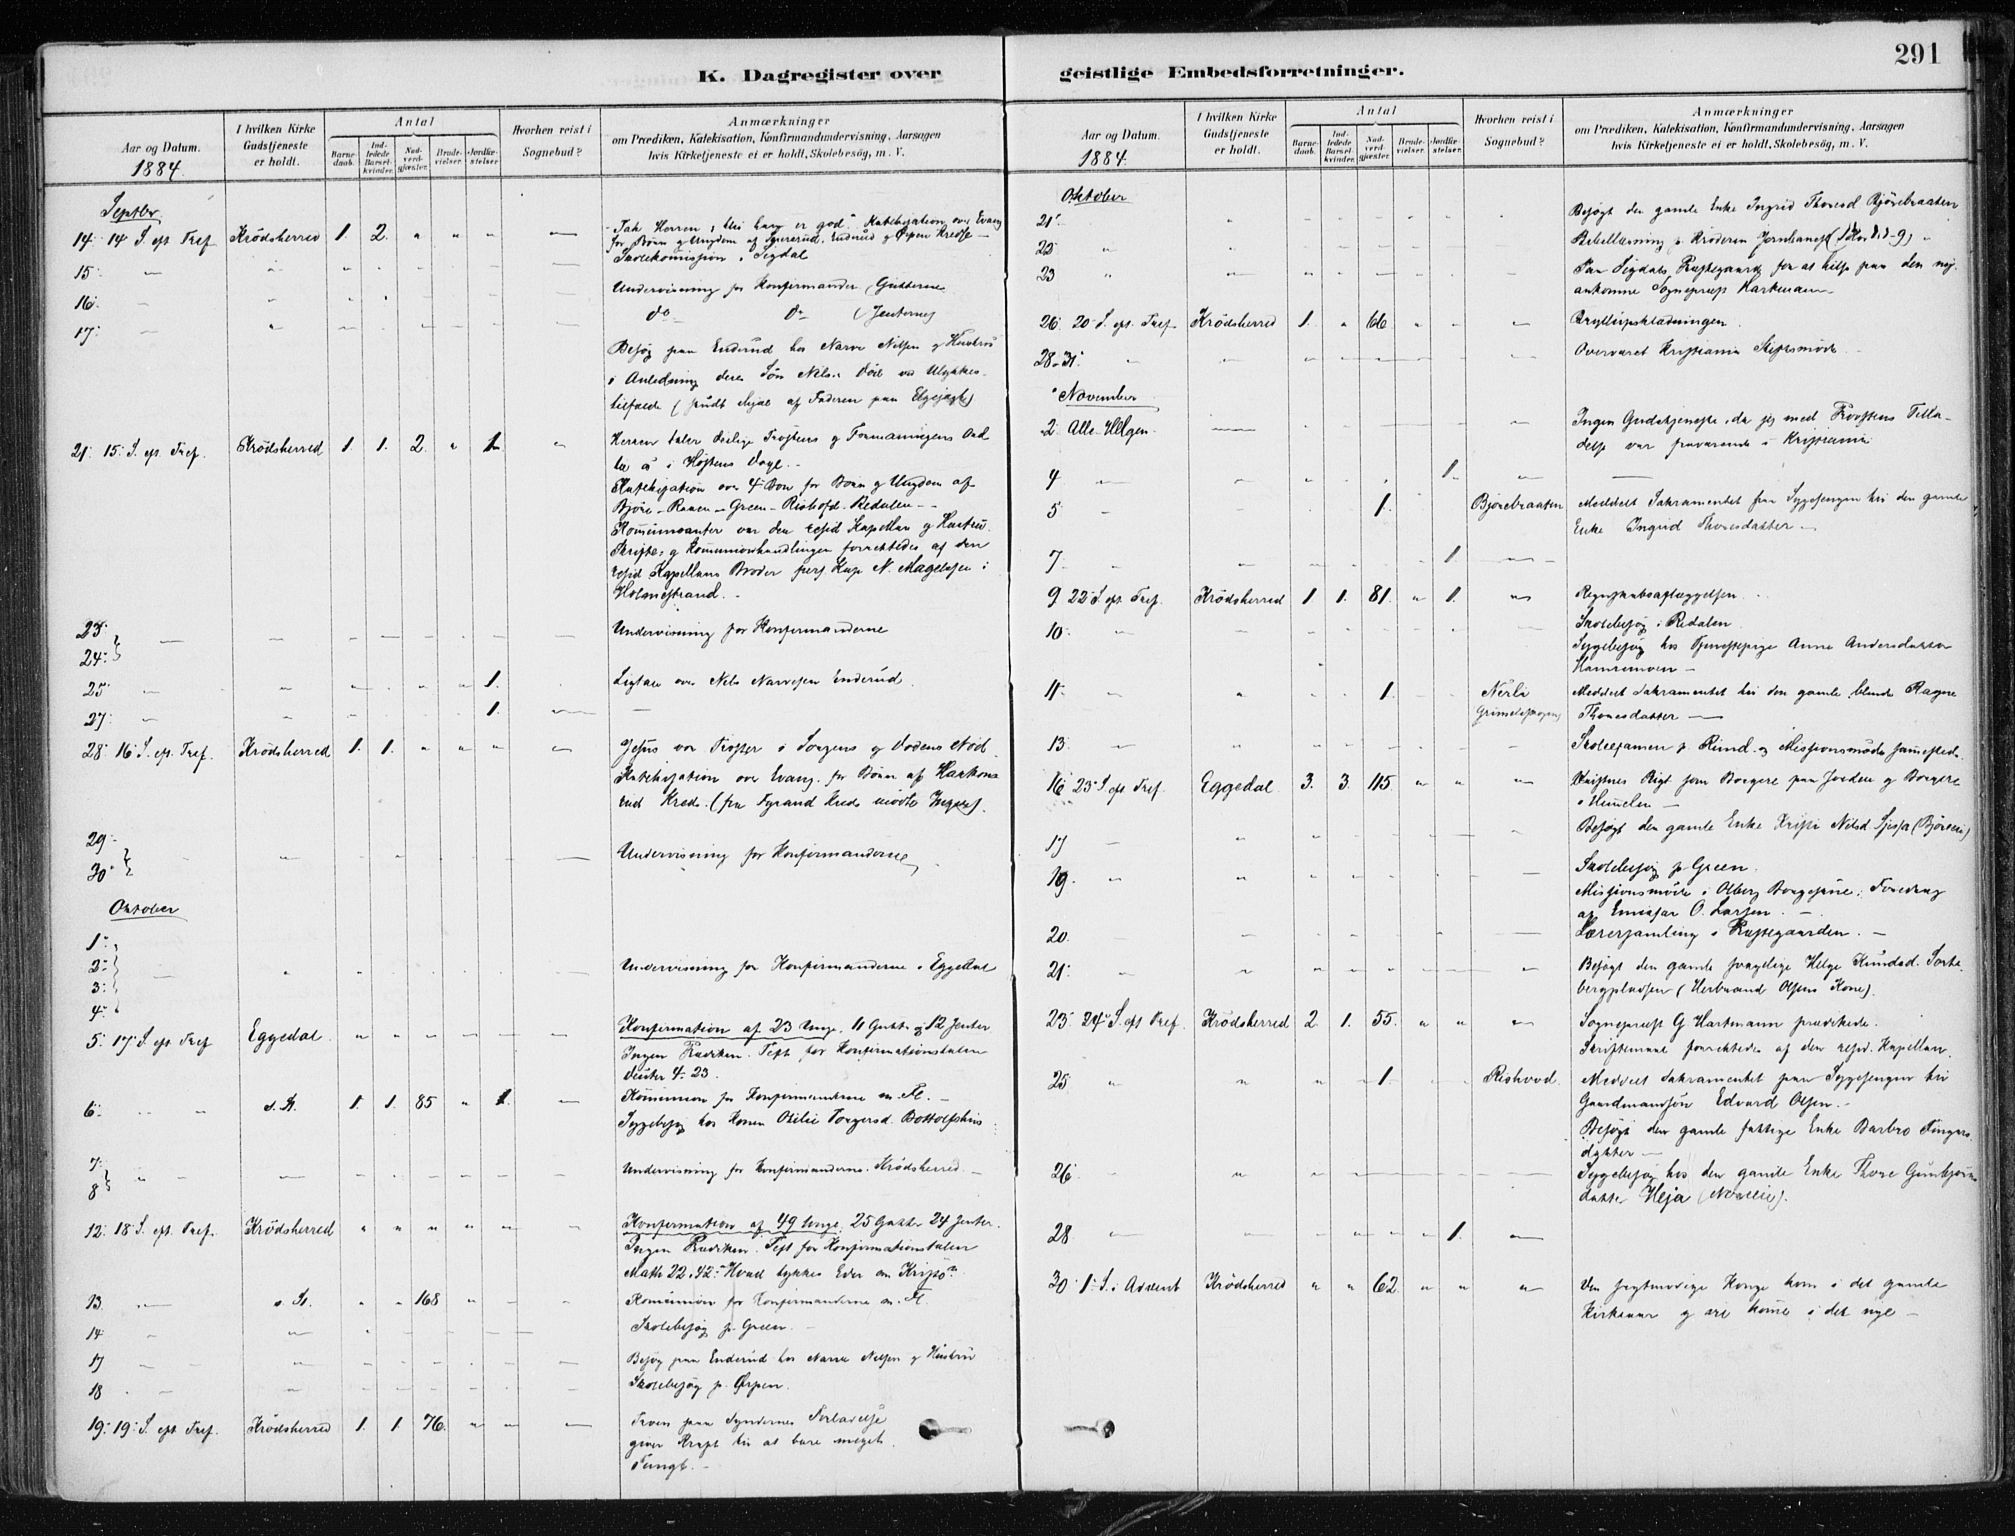 291
K. Dagregister over
Aar og Datum.
1884.
I hvilken Kirke Gudstjeneste er holdt.
Antal
Barnedaab.
Indledede Barselkvinder.
Nadverdgjæster.
Brudevielser.
Jordfæstelser.
Hvorhen reist i Sognebud?
Anmærkninger
om Prædiken, Katekisation, Konfirmandundervisning, Aarsagen
hvis Kirketjeneste ei er holdt, Skolebesøg, m. V.
Septbr
14. 14 S. eft Tref. Krødsherred 1. 2. " " " — Tak Herren; thi han er god. Katekisation over Evang
for Børn og Ungdom af Enderud
15 — Skolekomission i Sigdal
16 — Undervisning for Konfirmander (Gutterne
17 — do do (Jenterne)
Besøg paa Enderud hos Narve Nilsen og Hustru
i Anledning deres Søn Nils Død ved Ulykkes-
tilfælde (skudt ihjel af Faderen paa Elgejagt)
21. 15. S. eft. Tref. Krødsherred 1. 1. 2. " 1. " Herren taler deilige Trøstens og Formaningens Ord
til os i Høstens Dage.
Katekisation over 4 Bøn for Børn og Ungdom af
Bjøre - Ramen - Green - Rishofd - Redalen
Kommunicanter var den resid Kapellan og Hustru.
Skrifte- og Kommunionhandlingen forrettedes af den
resid Kapellans Broder pers Kap N. Magelssen i
Holmestrand.
23
24 — Undervisning for Konfirmanderne
25 — 1. Ligtale over Nils Narvesen Enderud
27 — 1. —
28. 16 S. eft. Tref. Krødsherred 1. 1. " " " — Jesus vor Trøster i Sorgens og Dødens Nød.
Katekisation over Evang. for Børn af Haakons
rud Kreds. (fra Kreds mødte Ingen).
29
30 — Undervisning for Konfirmanderne
Oktober
1
2
3
4 — Undervisning for Konfirmanderne i Eggedal
5. 17 S. eft Tref Eggedal " " " " " — Konfirmation af 23 Unge, 11 Gutter og 12 Jenter
Ingen Prædiken. Text for Konfirmationstalen
Deuter 4. 23.
6. " " s. St. 1. 1. 85 " 1. — Kommunion for Konfirmanderne m. Fl.
Sygebesøg hos Konen Torgersd. Bottolfshus
7.
8 — Undervisning for Konfirmanderne. Krødsherred.
12. 18 S. eft. Tref. Krødsherred " " " " " " Konfirmation af 49 Unge, 25 Gutter 24 Jenter.
Ingen Prædiken. Text for Konfirmationstalen
Math 22. 42. Hvad tykkes Eder om Kristo"
13. — s. St. " " 168 " " — Kommunion for Konfirmanderne m. Fl
14 — Skolebesøg p. Green.
17 — Besøg paa Enderud hos Narve Nilsen og Hustru
18 — Skolebesøg p. Ørpen.
19. 19. S. eft Tref. Krødsherred 1. 1. 76. " " — Troen paa Syndernes Forladelse
giver Kraft til at bære meget
Tungt. —
geistlige Embedsforretninger.
Aar og Datum.
1884.
I hvilken Kirke Gudstjeneste er holdt.
Antal
Barnedaab.
Indledede Barselkvinder.
Nadverdgjæster.
Brudevielser.
Jordfæstelser.
Hvorhen reist i Sognebud?
Anmærkninger
om Prædiken, Katekisation, Konfirmandundervisning, Aarsagen
hvis Kirketjeneste ei er holdt, Skolebesøg, m. V.
Oktober
21. " Besøgt den gamle Enke Ingrid Thoresd Bjørebraaten
22 " Bibellæsning p. Krøderen Jernbanest.
23 " Paa Sigdals Præstegaard for at hilse paa den ny-
ankomne Sognepræst Hartmann
26. 20 S. eft. Tref. Krødsherred 1. " 66 " " " Bryllupsklædningen.
28-31 — Overværet Kristiania Stiftsmøde
November
2. Alle Helgen. — Ingen Gudstjeneste, da jeg med Provstens Tilla-
delse var fraværende i Kristiania
4 — 1. — —
5 — 1. Bjørebraaten Meddelt Sakramentet paa Sygesengen til den gamle
Enke Ingrid Thoresdatter —
7 — 1. —
9. 22 S. eft Tref. Krødsherred 1. 1. 81. " 1. " Regnskabsaflæggelsen
10. — Skolebesøg i Redalen
Sygebesøg hos Tjenestepige Anne Andersdatter
Hamremoen —
11 — 1. Nerli Grimelskogen Meddelt Sakramentet til den gamle blinde Ragne
Thoresdatter —
13. — Skoleexamen p. Rund og Missionsmøde sammesteds.
16 23 S eft Tref. Eggedal 3. 3. 115. " " " Kristnes Rigt som Borgere paa Jorden og Borgere
i Himmelen —
17 — Besøgt den gamle Enke Kristi Nilsd
19. — Skolebesøg p. Green.
Missionsmøde i Olberg Foredrag
af Emissær O. Larsen. —
20. — Lærersamling i Præstegaarden. —
21. — Besøgt den gamle svagelige Helge Knudsd. Sorte-
bergpladsen (Herbrand Olsens Kone).
23. 24 S. eft Tref. Krødsherred 2. 1. 55. " " " Sognepræst G Hartmann prædikede.
Skriftemaal forrettedes af den resid. Kapellan.
25 " 1. Rishovd. Meddelt Sakramentet paa Sygesengen til
Gaardmandsøn Edvard Olsen. —
Besøgt den gamle fattige Enke Barbro
datter —
26 — Sygebesøg hos den gamle Enke Thore Gunbjørns
datter Heja
28 — 1. —
30. 1. S. i Advent Krødsherred " " 62. " " " Den sagtmodige Konge kom i det gamle
Kirkeaar og ere komne i det nye —